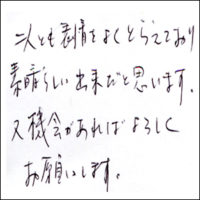 二人とも表情をよくとらえており
素晴らしい出来だと思います。
又機会があればよろしく
お願いします。